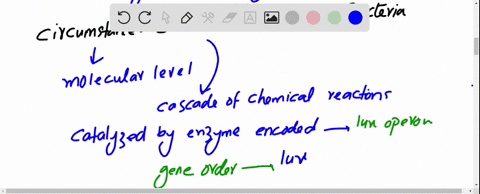 cteria
circumstance
molecular level
cascade of chemical reactions
catalyzed by enzyme encoded → lux operon
gene order → lux